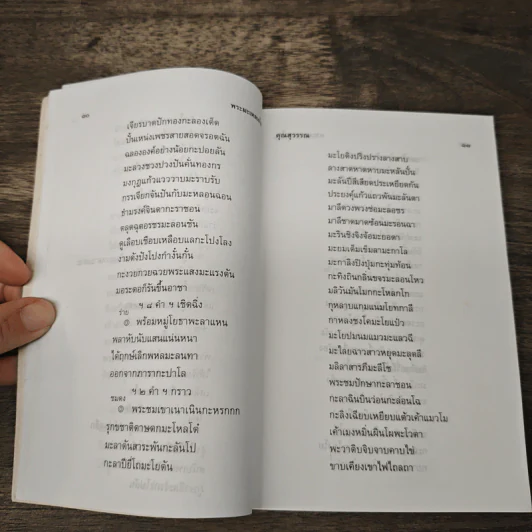 ๑๐
เจียรบาดปักทองกะลองเด็ด
ปั้นเหน่งเพชรสายสอดจรอดฉัน
ฉลององค์อย่างน้อยกะปอยลัน
มะล่วงช่วงปวงปันคั่นทองกร
มงกุฎแก้วแวววาบมะราบรับ
กรรเจียกจันปันกับมะหลอนฉอน
ธำมรงค์จินดากะราซอน
ดูเลื่อมเชื่อมเหลือบแลกะโปงโลง
งามดังปังโปงกำงั้นกั้น
กะงวยกวยฉวยพระแสงมะแรงตัน
มอระดอก็รันขึ้นอาชา
ฯ ๘ คำ ฯ เชิดฉิ่ง
ร่าย
๏ พร้อมหมู่โยธาพะลาแหน
พลาหับนับแสนแน่นหนา
ได้ฤกษ์เลิกพหลมะลนทา
ออกจากภารากะปาโล
ฯ ๒ คำ ฯ กราว
ชมดง
๏ พระชมเขาเนาเนินกะหรกกก
รุกขชาติดาษดกมะโหลโต๋
มะลาต้นสาระพันกะลันโป
กะลาปียี่โถมะโยตัน
คุณสุวรรณ
๑๑
มะโยติงปริงปรางลางสาบ
ลางสาดหาดหาบมะหลันปั้น
มะลันปีสีเสียดประเหยียดกัน
ประยงค์แก้วแถวพันมะลันดา
มาลีดวงพวงช่อมะลอชร
มาลีซาดมาดซ้อนมะรอนฉา
มะรินชิงจิงจ้อมะยอตา
มะยมเต็มเข็มลามะกาโล
มะกาลิงปิงปุ่มกะทุ่มท้อน
กะทิงถินกลิ่นขจรมะลอนโหว
มลิวันมันโมกกะโหลกโก
กุหลาบแกมแนมโยทกาลี
กาหลงชงโคมะโยแป๋ว
มะโยปมนมแมวมะแลวฉี
มะไลยฉาวสาวหยุดมะลุดลี
มลิลาสารภีมะลีโช
พระชมปักษากะลาซอน
กะลาฉินบินว่อนกะล่อนโฉ
กะลิงเฉียบเหยียบแต้วเค้าแมวโม
เค้าเมงหมิ่นผินโผพะไวตา
พะวาดิบจิบจาบคาบไข่
ขาบเคียงเขาไฟไถลถา